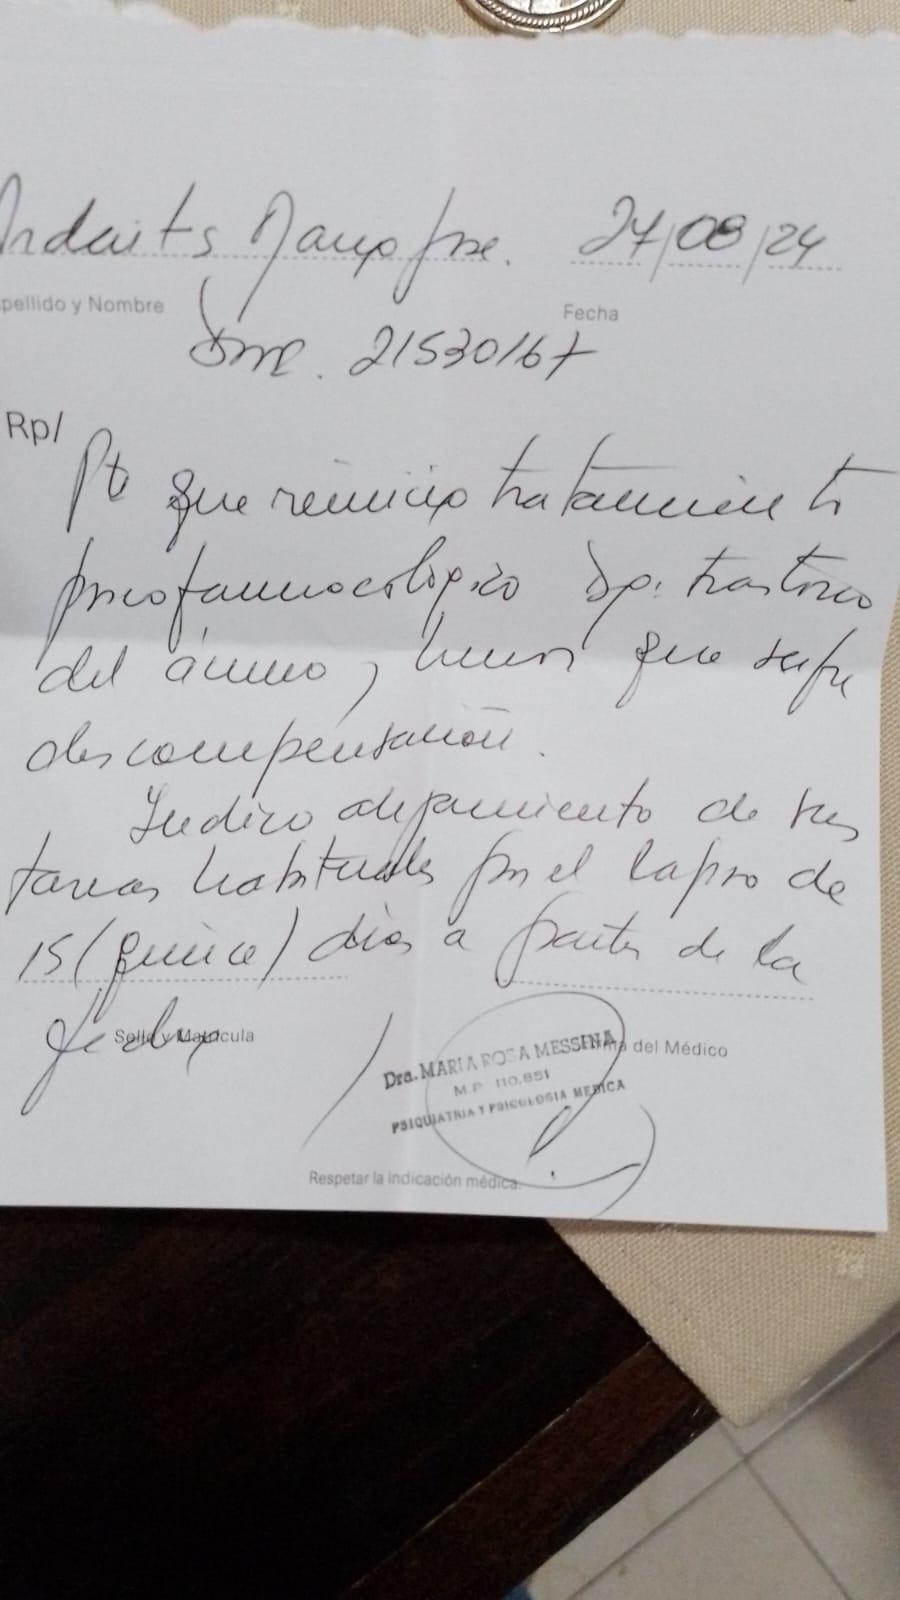 27/08/24
pellido y Nombre
Fecha
DNI. 21530167
Rp/
Pte que reinicio tratamiento
psicofarmacológico Dg: trastorno
del ánimo, que sufre
descompensación.
Indico alejamiento de sus
tareas habituales por el lapso de
15 (quince) dias a partir de la
fecha
Sello y Matrícula
a del Médico
Dra. MARIA ROSA MESSINA
M.P. 110.851
PSIQUIATRIA Y PSICOLOGIA MEDICA
Respetar la indicación médica.